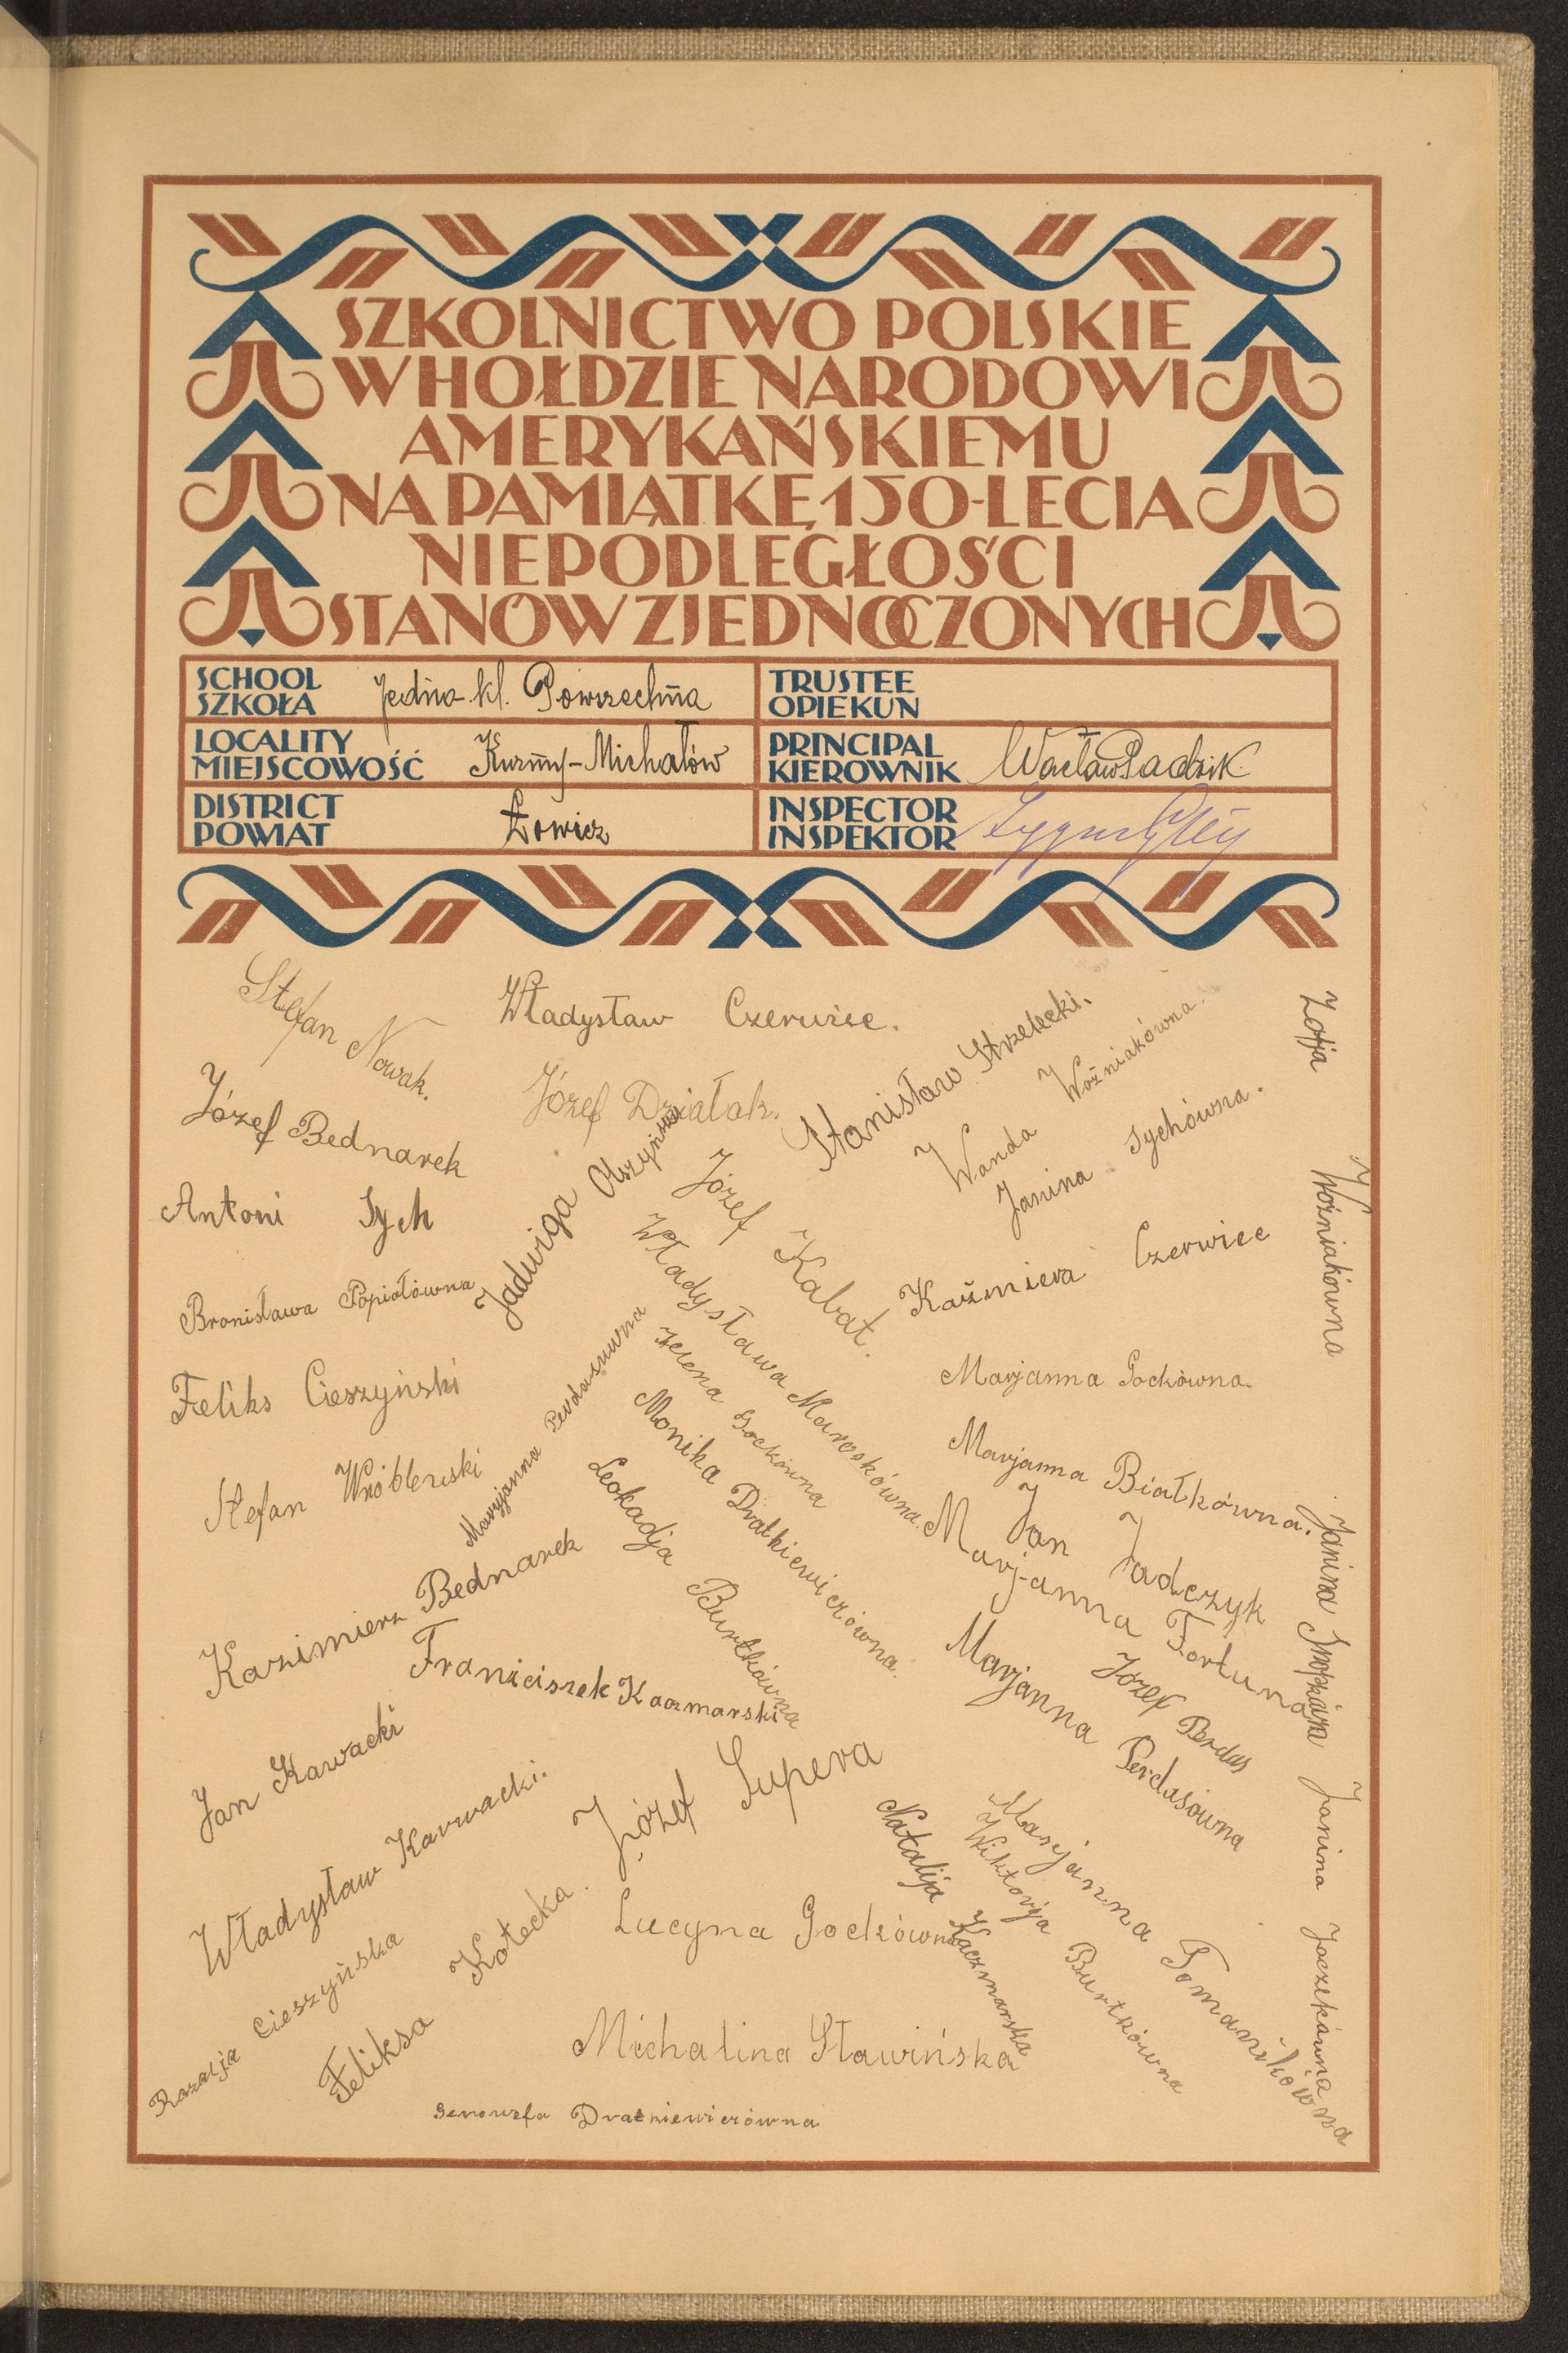 SZKOLNICTWO POLSKIE
W HOŁDZIE NARODOWI
AMERYKAŃSKIEMU
NA PAMIĄTKĘ 150-LECIA
NIEPODLEGŁOŚCI
STANÓW ZJEDNOCZONYCH
SCHOOL
SZKOŁA
Jedno-kl. Powszechna
TRUSTEE
OPIEKUN
LOCALITY
MIEJSCOWOŚĆ
Michałów
PRINCIPAL
KIEROWNIK
Wacław Padzik
DISTRICT
POWIAT
Łowicz
INSPECTOR
INSPEKTOR
Stefan Nowak.
Władysław Czerwiec.
Józef Bednarek
Józef Działak.
Stanisław Strzelecki.
Wanda Woźniakówna.
Zofja Woźniakówna
Antoni Sych
Jadwiga Olszyńska
Józef Kabat.
Janina Sychówna.
Bronisława Popiołówna
Kaźmiera Czerwiec
Władysława Maroskówna.
Feliks Cieszyński
Marjanna Perdasuwna
Helena Gockówna
Marjanna Gockówna.
Stefan Wróblewski
Monika Dratkiewiczówna.
Marjanna Białkówna.
Leokadja Burtkówna
Jan Jadczyk
Kazimierz Bednarek
Marjanna Fortuna
Janina
Franiciszek Kaczmarski
Józef Perdas
Marjanna Perdasówna
Jan Kawacki
Józef Supera
Władysław Karwacki.
Natalija Kaczmarska
Marjanna Tomazikówna
Wiktorija Burtkówna
Janina Joczekówna
Lucyna Gockówna
Rozalja Cieszyńska
Feliksa Kotecka.
Michalina Sławińska
Genowefa Dratniewiczówna